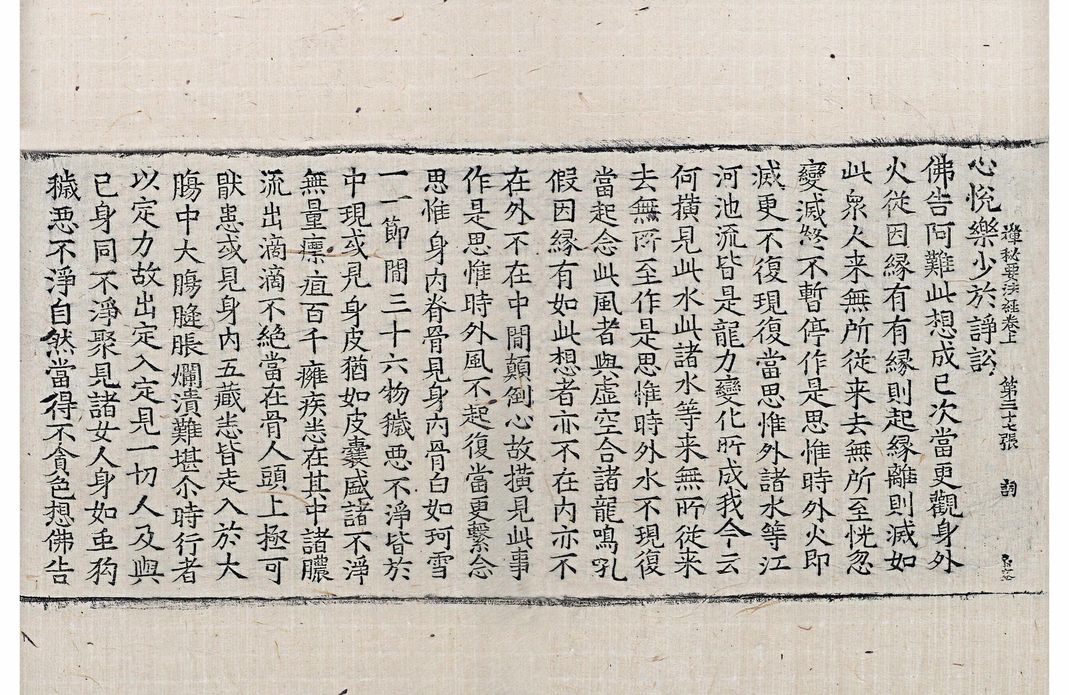 禪秘要法經卷上　第三十七張　詞
心悅樂少於諍訟
佛告阿難此想成已次當更觀身外
火從因縁有有縁則起縁離則滅如
此衆火来無所從来去無所至恍忽
變滅終不暫停作是思惟時外火即
滅更不復現復當思惟外諸水等江
河池流皆是龍力變化所成我今云
何橫見此水此諸水等来無所從来
去無所至作是思惟時外水不現復
當起念此風者與虛空合諸龍鳴吼
假因縁有如此想者亦不在内亦不
在外不在中間顛倒心故橫見此事
作是思惟時外風不起復當更繫念
思惟身内脊骨見身内骨白如珂雪
一一節間三十六物穢惡不淨皆於
中現或見身皮猶如皮囊盛諸不淨
無量癭疽百千癰疾悉在其中諸膿
流出滴滴不絶當在骨人頭上極可
猒患或見身内五藏悉皆走入於大
膓中大膓膖脹爛潰難堪尒時行者
以定力故出定入定見一切人及與
己身同不淨聚見諸女人身如䖝狗
穢惡不淨自然當得不貪色想佛告